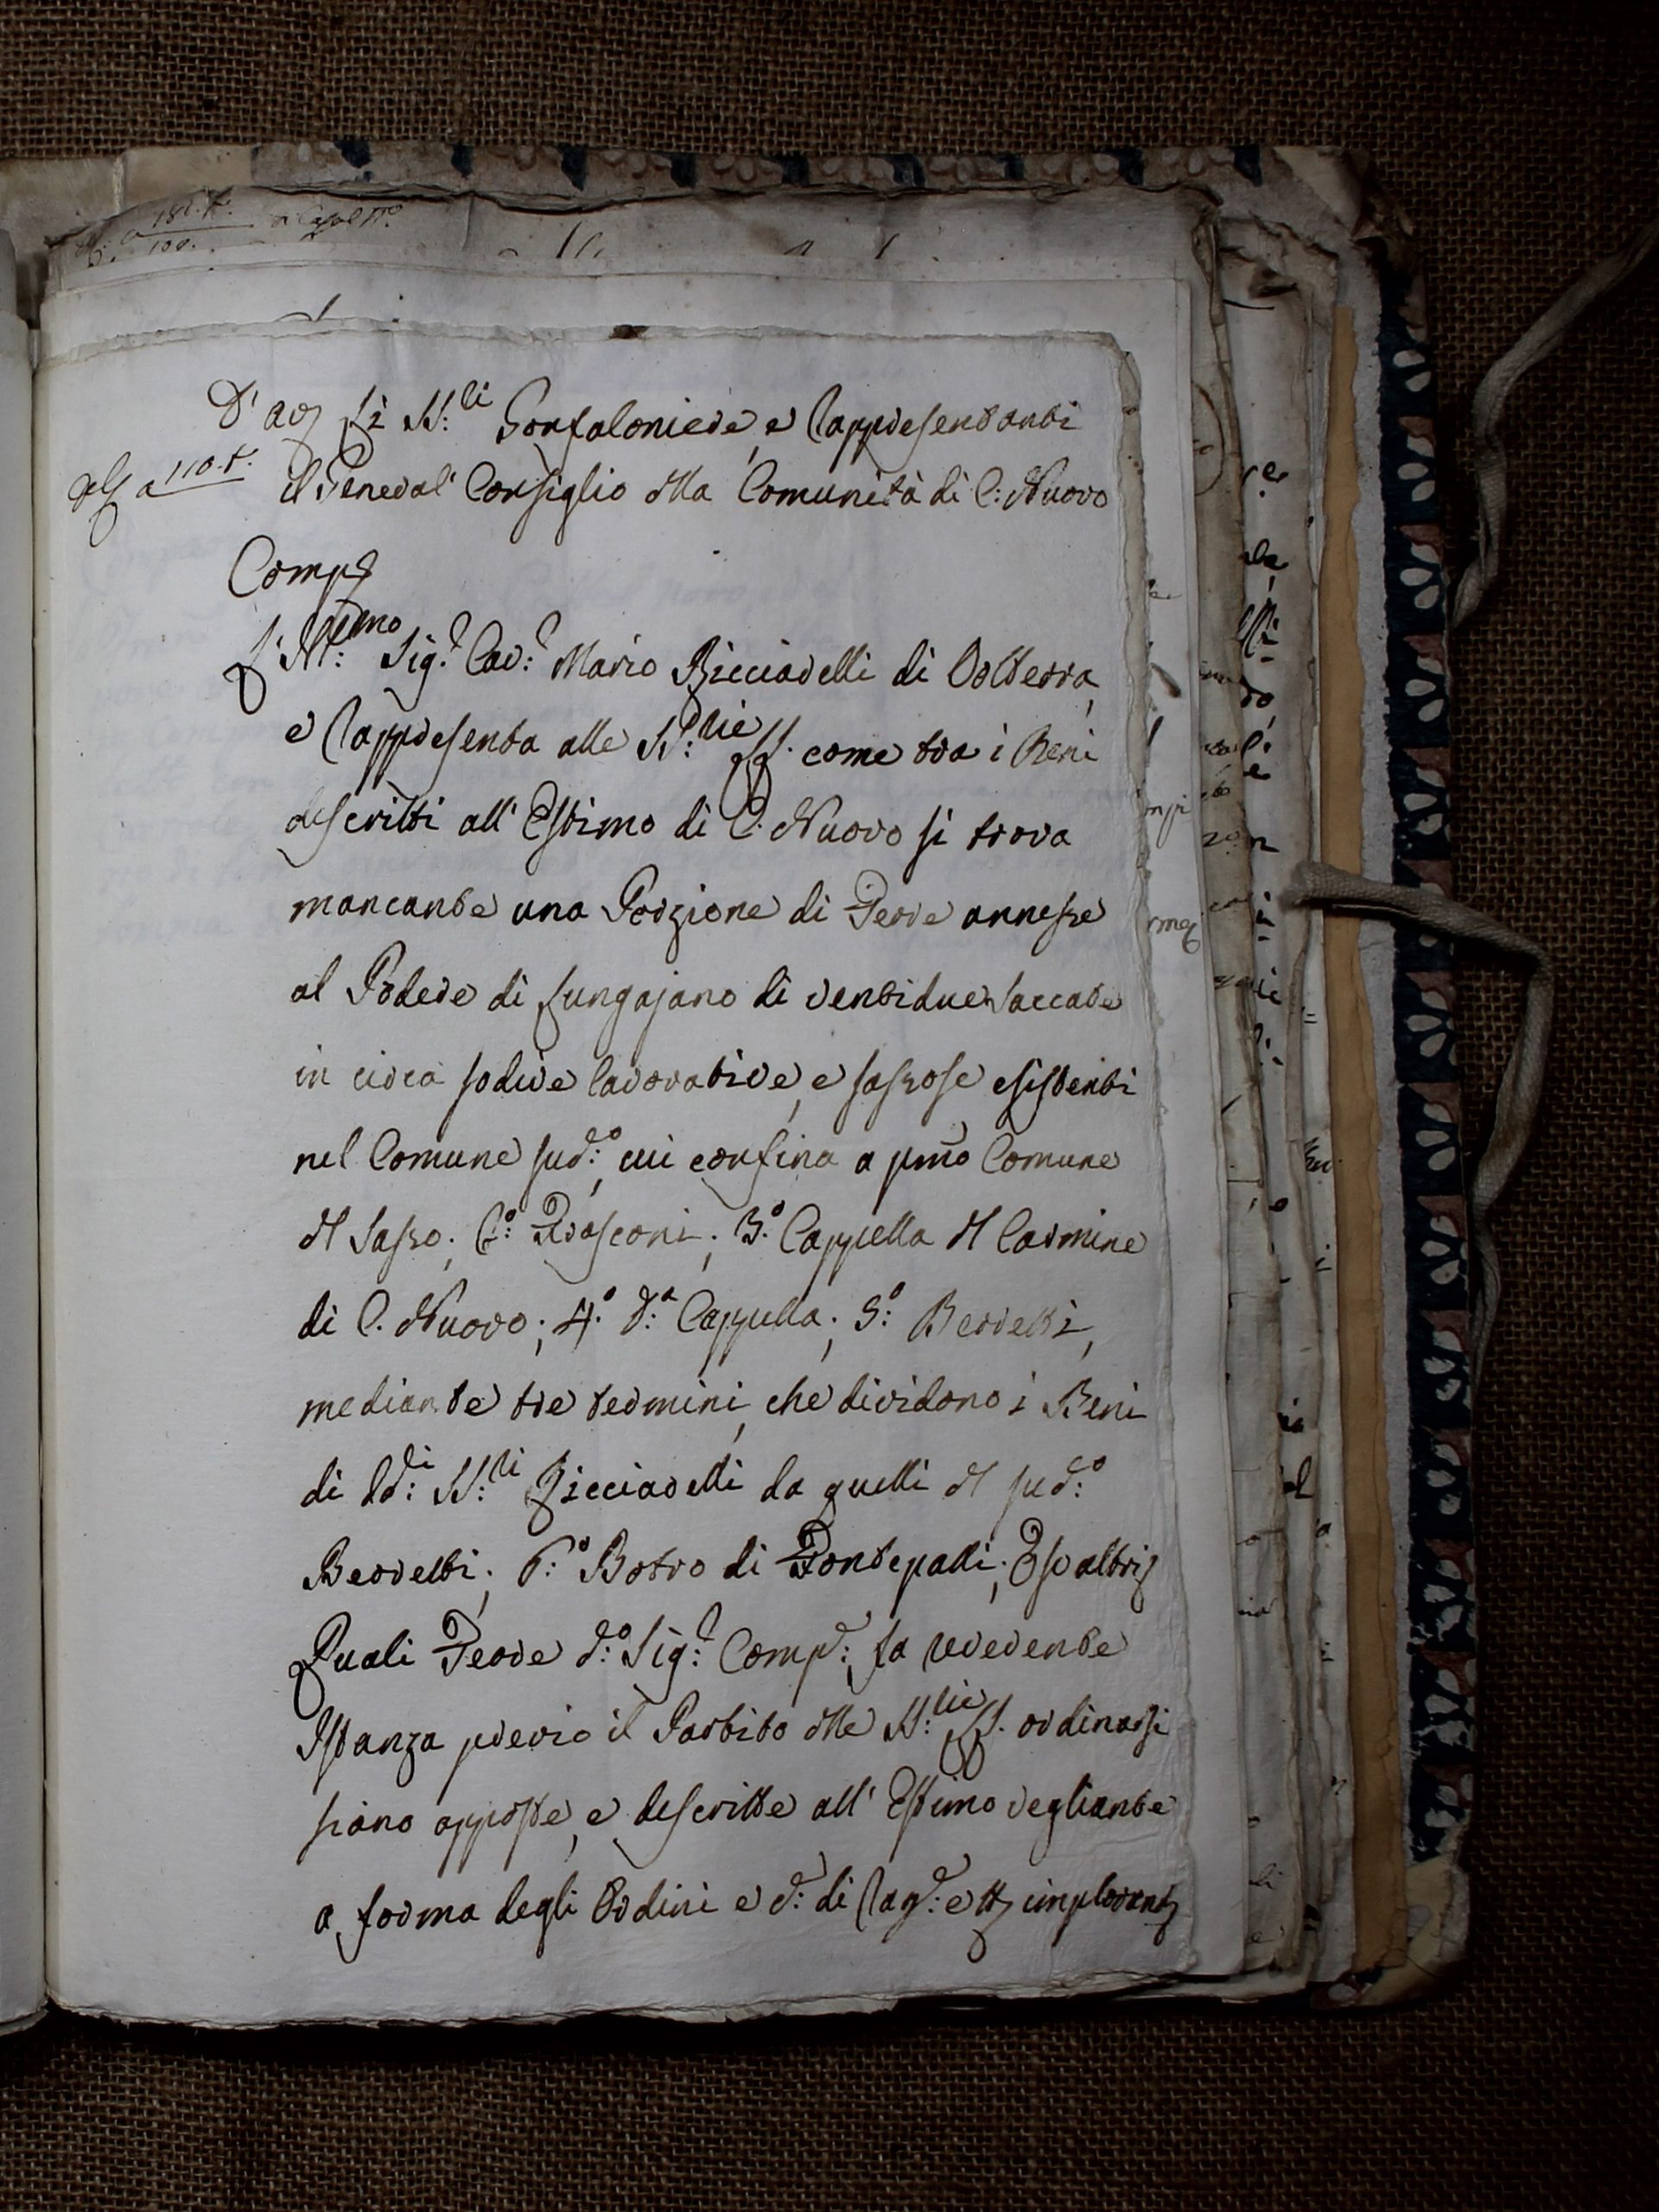 D' avz li SS:ri Gonfaloniere, e Rappresentanti
a 110.t. il General' Consiglio della Comunità di C: Nuovo
Comp
L'Ill:mo Sig:r Cav:r Mario Ricciarelli di Volterra,
e Rappresenta alle SS:rie LL. come tra i Beni
descritti all' Estimo di C. Nuovo si trova
mancante una Porzione di Terre annesse
al Podere di Fungajano di ventidue saccate
in circa sodive lavorative, e sassose esistenti
nel Comune sud:o, cui confina a pmo Comune
del Sasso; 2:o Trasconi; 3.o Cappella del Carmine
di C. Nuovo; 4.o d:a Cappella; 5:o Berretti,
mediante tre termini, che dividono i Beni
di dd:i SS:ri Ricciarelli da quelli del sud:o
Berretti; 6:o Botro di Pontepatti; Eso altri
Quali Terre d:o Sig:r Comp:e fa reverente
Istanza previo il Partito delle SS:rie LL. ordinarsi
siano apposte, e descritte all' Estimo vegliante
a forma degli Ordini e d: di Rag:e implorant